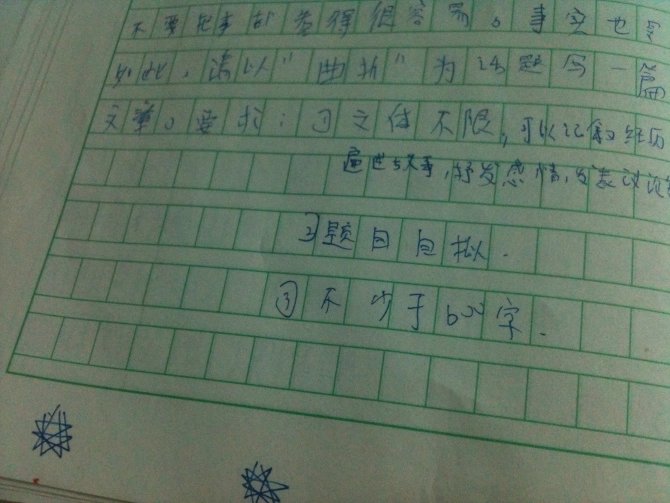 不要把事都看得很容易。事实也是
如此，请以"曲折"为话题写一篇
文章。要求：①文体不限，可以记叙经历
感情，发表议论等
②题目自拟.
③不少于600字.